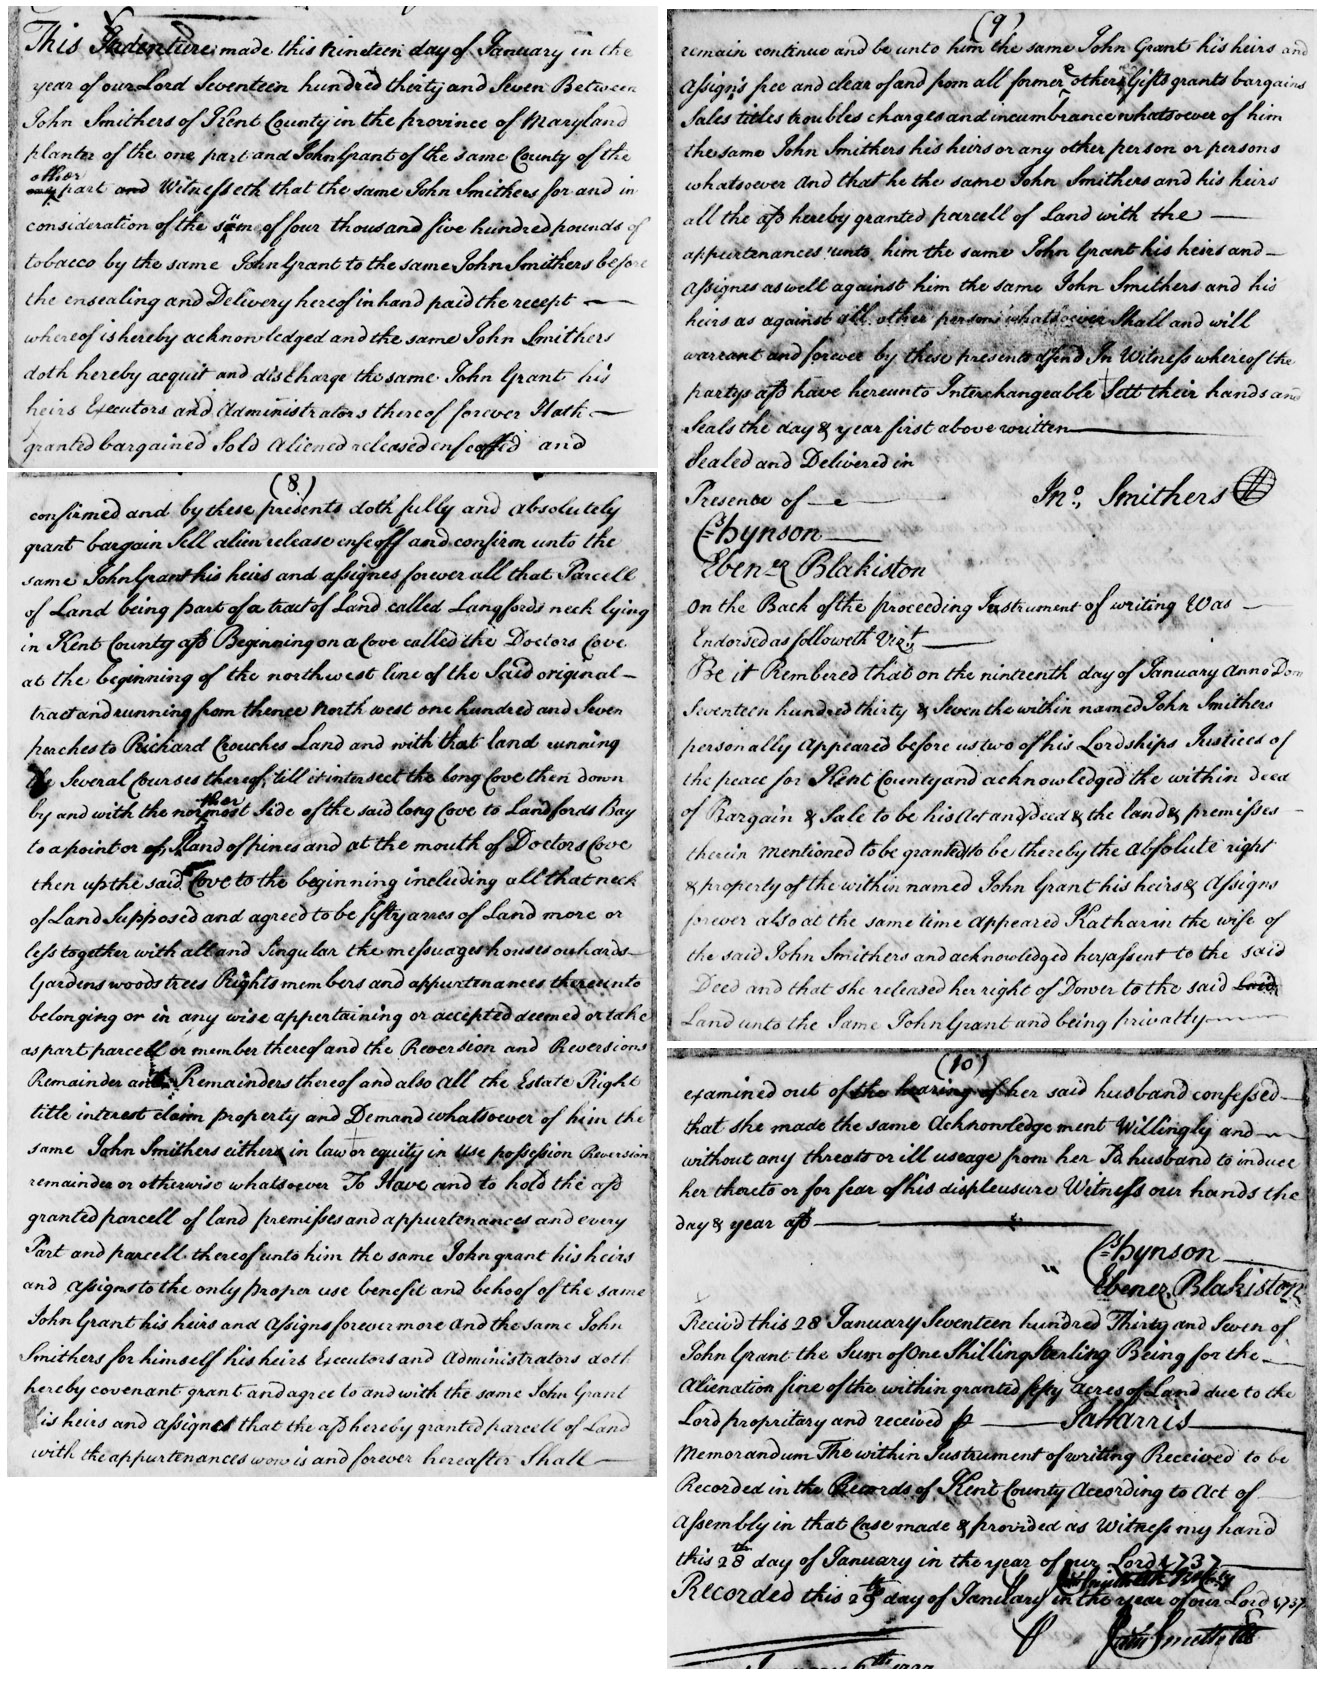 This Indenture made this nineteen day of January in the
year of our Lord Seventeen hundred thirty and Seven Between
John Smithers of Kent County in the province of Maryland
planter of the one part and John Grant of the same County of the
other
part and Witnesseth that the same John Smithers for and in
consideration of the sum of four thousand five hundred pounds of
tobacco by the same John Grant to the same John Smithers before
the ensealing and Delivery hereof in hand paid the recept
whereof is hereby acknowledged and the same John Smithers
doth hereby acquit and discharge the same John Grant his
heirs Executors and Administrators thereof forever Hath
granted bargained Sold aliened released enfeoffed and
(8)
confirmed and by these presents doth fully and absolutely
grant bargain Sell alien release enfeoff and confirm unto the
same John Grant his heirs and assignes forever all that Parcell
of Land being part of a tract of Land called Langfords neck lying
in Kent County afd Beginning on a Cove called the Doctors Cove
at the beginning of the northwest line of the Said original
tract and running from thence North west one hundred and Seven
perches to Richard Crouches Land and with that land running
by Several Courses thereof till it intersect the long Cove then down
ther
by and with the normost Side of the said long Cove to Landfords Bay
to a point or Iland of pines and at the mouth of Doctors Cove
then up the said Cove to the beginning including all that neck
of Land Supposed and agreed to be fifty acres of Land more or
less together with all and Singular the messuages houses orchards
Gardens woods trees Rights members and appurtenances thereunto
belonging or in any wise appertaining or accepted deemed or take
as part parcell or member thereof and the Reversion and Reversions
Remainder and Remainders thereof and also all the Estate Right
title interest claim property and Demand whatsoever of him the
same John Smithers either in law or equity in Use possession Reversion
remainder or otherwise whatsoever To Have and to hold the afd
granted parcell of land premisses and appurtenances and every
Part and parcell thereof unto him the same John grant his heirs
and assigns to the only proper use benefit and behoof of the same
John Grant his heirs and Assigns forevermore and the same John
Smithers for himself his heirs Executors and Administrators doth
hereby covenant grant and agree to and with the same John Grant
his heirs and assignes that the afd hereby granted parcell of Land
with the appurtenances now is and forever hereafter Shall
(9)
remain continue and be unto him the same John Grant his heirs and
Assigns free and clear of and from all former & other Gifts grants bargains
Sales titles troubles charges and incumbrance whatsoever of him
the same John Smithers his heirs or any other person or persons
whatsoever and that he the same John Smithers and his heirs
all the afd hereby granted parcell of Land with the
appurtenances unto him the same John Grant his heirs and
Assignes as well against him the same John Smithers and his
heirs as against all other persons whatsoever Shall and will
warrant and forever by these presents defend In Witness whereof the
partys afd have hereunto Interchangeable Sett their hands and
Seals the day & year first above written
Sealed and Delivered in
Presence of Jno. Smithers
Cs Hynson
Ebenr Blakiston
On the Back of the proceeding Instrument of writing Was
Endorsed as followeth Vizt
Be it Rembered that on the ninteenth day of January Anno Dom
Seventeen hundred thirty & Seven the within named John Smithers
personally Appeared before us two of his Lordships Justices of
the peace for Kent County and acknowledged the within deed
of Bargain & Sale to be his Act and Deed & the land & premisses
therein mentioned to be granted to be thereby the absolute right
& property of the within named John Grant his heirs & Assigns
forever also at the same time appeared Katharin the wife of
the said John Smithers and acknowledged her assent to the said
Deed and that she released her right of Dower to the said Said
Land unto the Same John Grant and being privatly
(10)
examined out of the hearing of her said husband confessed
that she made the same Acknowledgement Willingly and
without any threats or ill useage from her Sd husband to induce
her thereto or for fear of his displeusure Witness our hands the
day & year afd
Cs Hynson
Ebener Blakiston
Receivd this 28 January Seventeen hundred Thirty and Seven of
John Grant the Sum of One Shilling Sterling Being for the
Alienation fine of the within granted fifty Acres of Land due to the
Lord propritary and received p Ja Harris
Memorandum The within Instrument of writing Received to be
Recorded in the Records of Kent County According to Act of
Assembly in that Case made & provided as Witness my hand
this 28th day of January in the year of our Lord 1737
Recorded this 29th day of January in the year of our Lord 1737